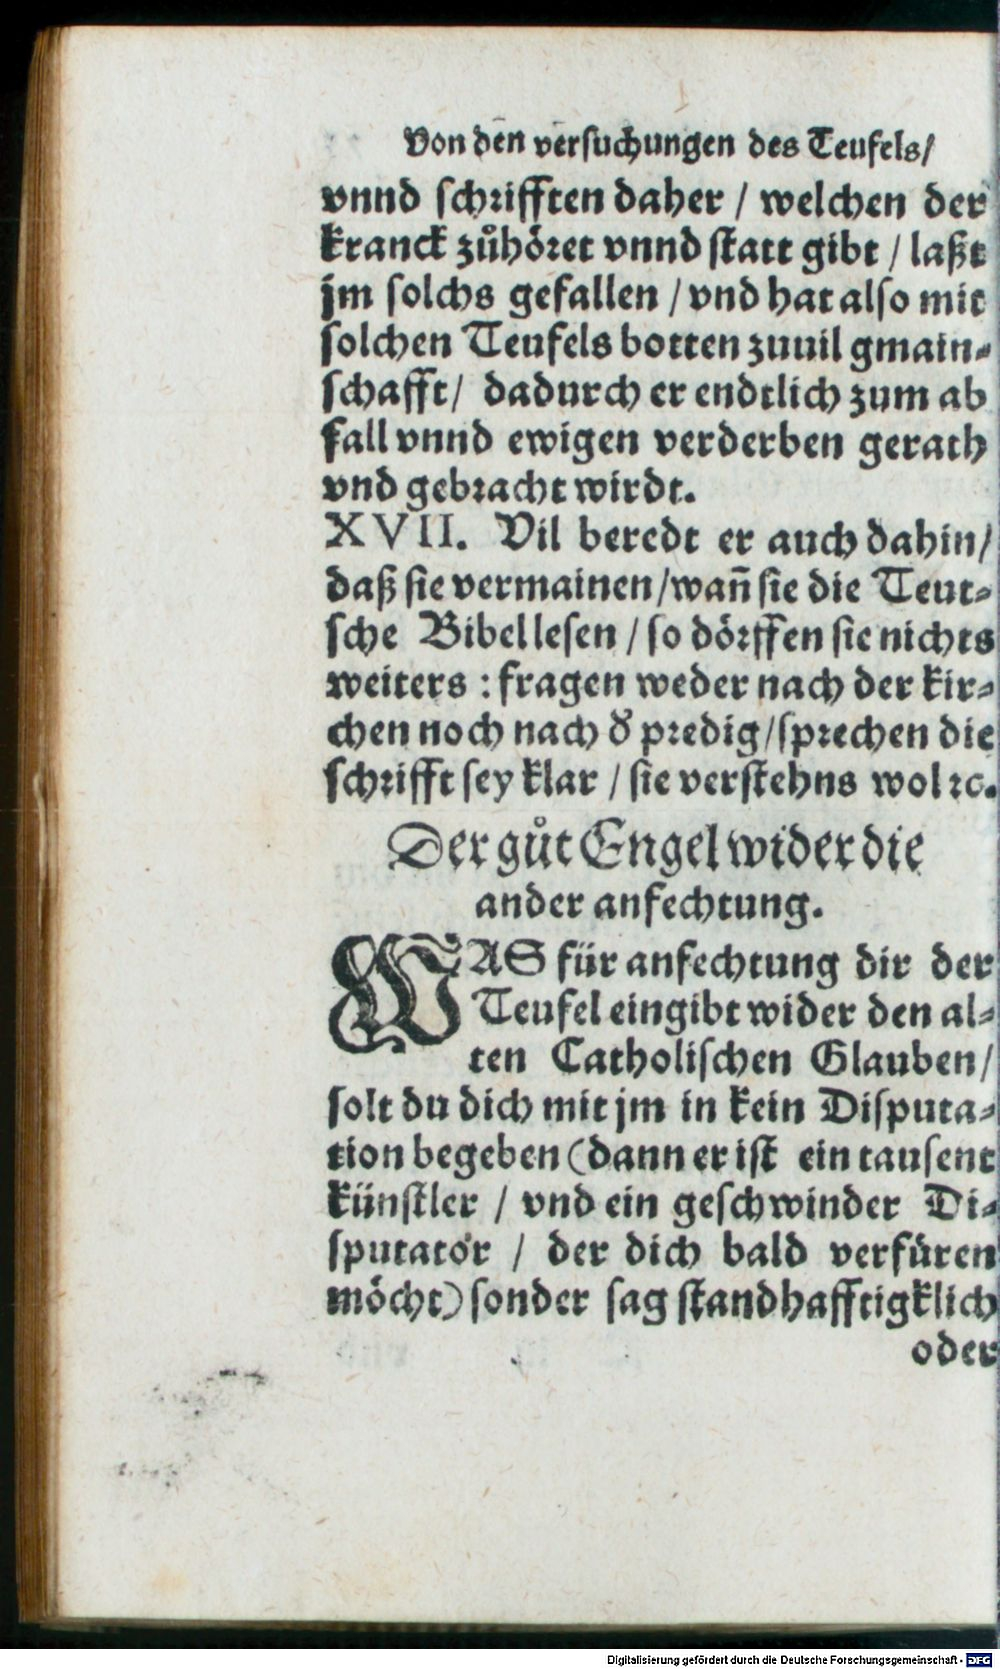 Von den versuchungen des Teufels/
vnnd schrifften daher / welchen der
kranck zůhöret vnnd statt gibt / laßt
jm solchs gefallen / vnd hat also mit
solchen Teufels botten zuuil gmain-
schafft / dadurch er endtlich zum ab
fall vnnd ewigen verderben gerath
vnd gebracht wirdt.
XVII. Vil beredt er auch dahin /
daß sie vermainen / wañ sie die Teut-
sche Bibel lesen / so dörffen sie nichts
weiters : fragen weder nach der kir-
chen noch nach d̕ predig / sprechen die
schrifft sey klar / sie verstehns wol ꝛc.
Der gůt Engel wider die
ander anfechtung.
WAS für anfechtung dir der
Teufel eingibt wider den al-
ten Catholischen Glauben /
solt du dich mit jm in kein Disputa-
tion begeben (dann er ist ein tausent
künstler / vnd ein geschwinder Di-
sputator / der dich bald verfüren
möcht) sonder sag standhafftigklich
oder
Digitalisierung gefördert durch die Deutsche Forschungsgemeinschaft - DFG